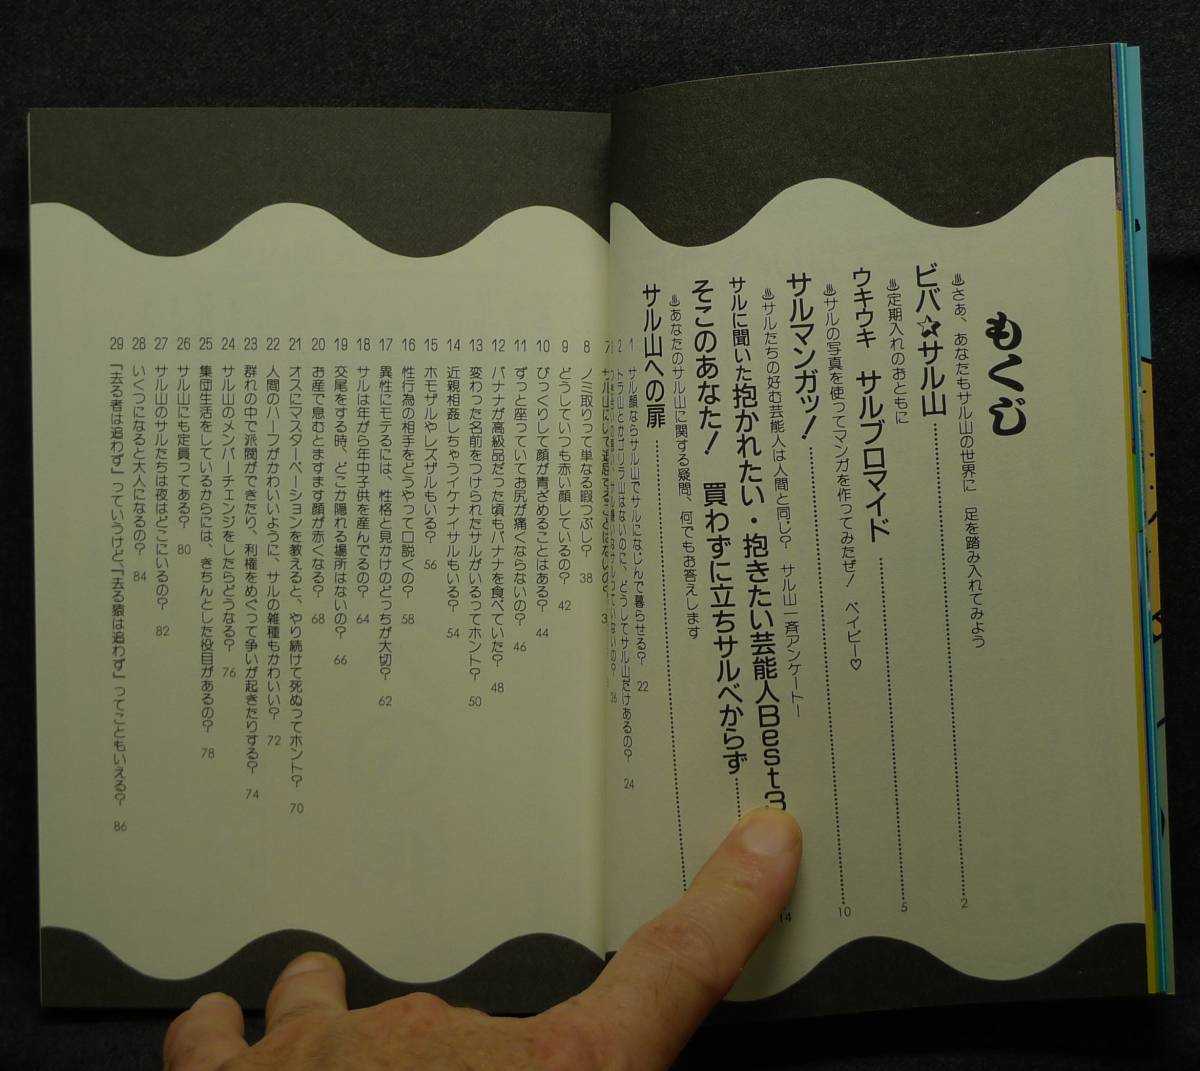 もくじ
♨さあ、あなたもサル山の世界に 足を踏み入れてみよう
ビバ☆サル山 2
♨定期入れのおともに
ウキウキ サルブロマイド 5
♨サルの写真を使ってマンガを作ってみたぜ! ベイビー♡
サルマンガッ! 10
♨サルたちの好む芸能人は人間と同じ? サル山一斉アンケートー
サルに聞いた抱かれたい・抱きたい芸能人Best3 14
そこのあなた! 買わずに立ちサルべからず
♨あなたのサル山に関する疑問、何でもお答えします
サル山への扉
1 サル顔ならサル山でサルになじんで暮らせる? 22
2 トラ山とかゴリラ山はないのに、どうしてサル山だけあるの? 24
7 サル山にいて退屈することはないの?
8 ノミ取りって単なる暇つぶし? 38
9 どうしていつも赤い顔しているの? 42
10 びっくりして顔が青ざめることはある? 44
11 ずっと座っていてお尻が痛くならないの? 46
12 バナナが高級品だった頃もバナナを食べていた? 48
13 変わった名前をつけられたサルがいるってホント? 50
14 近親相姦しちゃうイケナイサルもいる? 54
15 ホモザルやレズザルもいる? 56
16 性行為の相手をどうやって口説くの? 58
17 異性にモテるには、性格と見かけのどっちが大切? 62
18 サルは年がら年中子供を産んでるの? 64
19 交尾をする時、どこか隠れる場所はないの? 66
20 お産で息むとますます顔が赤くなる? 68
21 オスにマスターベーションを教えると、やり続けて死ぬってホント? 70
22 人間のハーフがかわいいように、サルの雑種もかわいい? 72
23 群れの中で派閥ができたり、利権をめぐって争いが起きたりする? 74
24 サル山のメンバーチェンジをしたらどうなる? 76
25 集団生活をしているからには、きちんとした役目があるの? 78
26 サル山にも定員ってある? 80
27 サル山のサルたちは夜はどこにいるの? 82
28 いくつになると大人になるの? 84
29 「去る者は追わず」っていうけど、「去る猿は追わず」ってこともいえる? 86